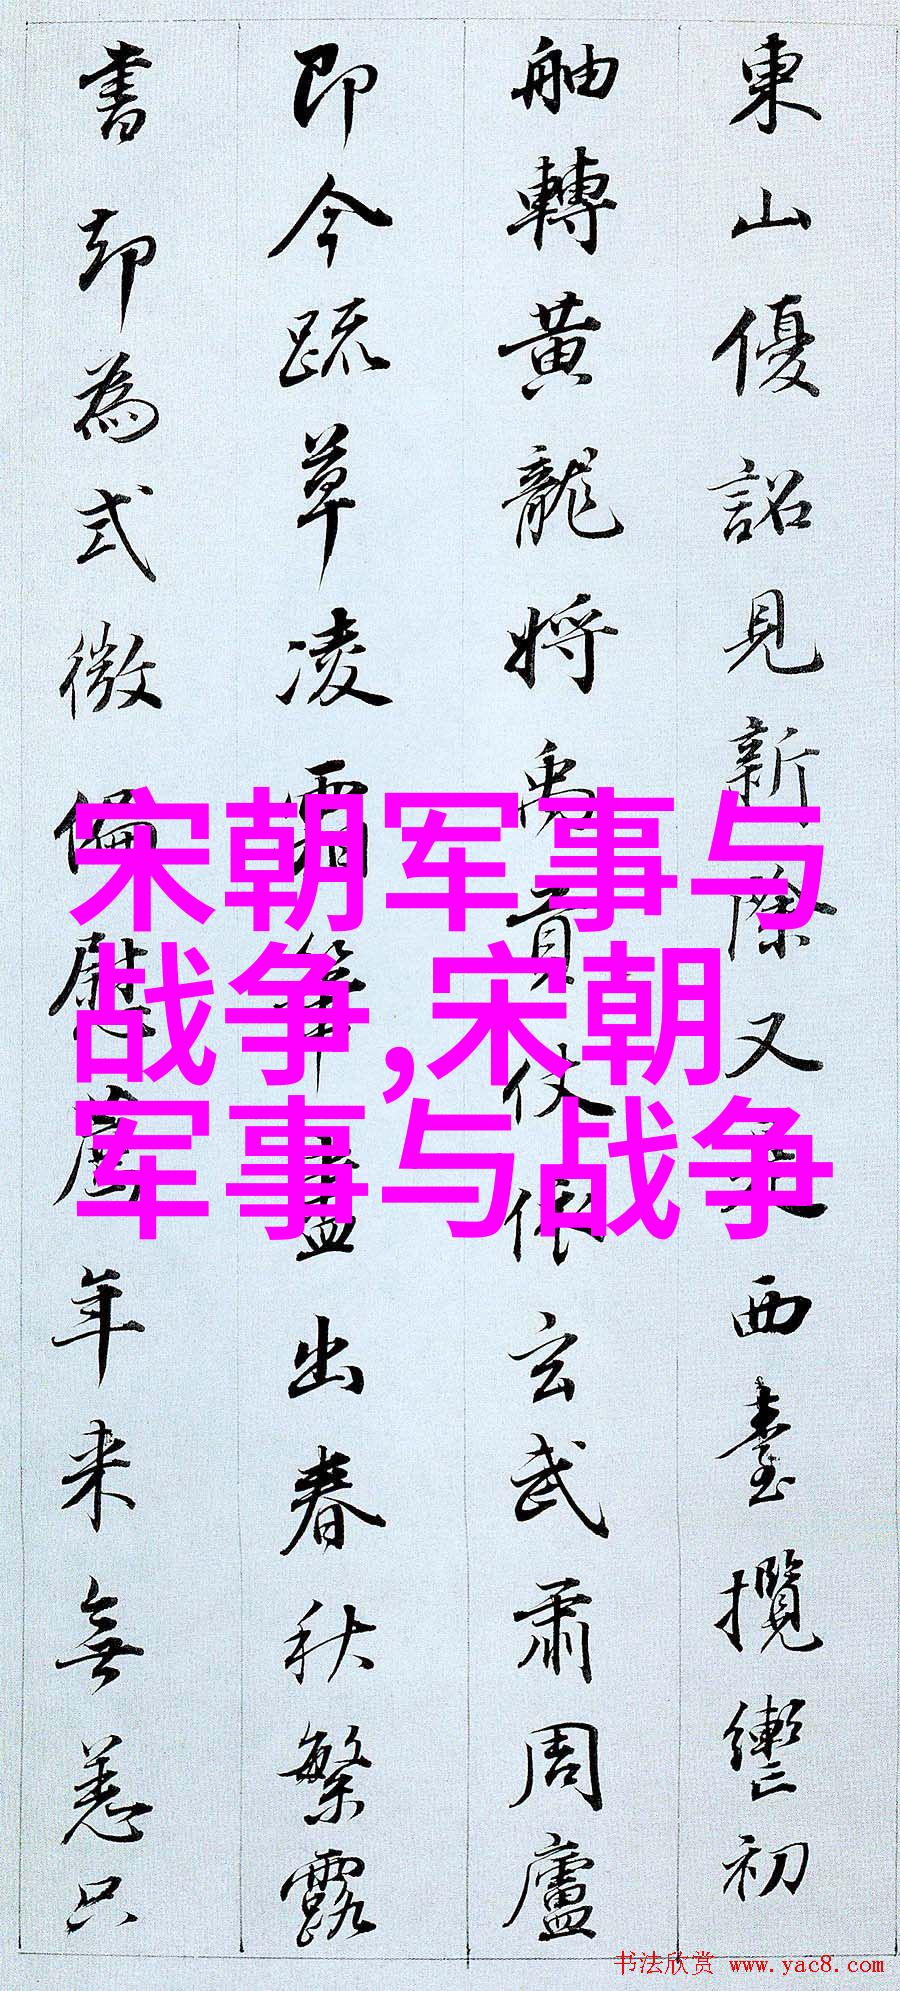 東山優詔見新除又是西臺攬轡初
舳轉黃龍將禹貢仗依玄武肅周廬
即今疏草凌霜筆盡出春秋繁露
書却為式微偏慰薦年来無恙只
宋朝军事与
战争,宋朝
军事与战争
书法欣赏 www.yac8.com